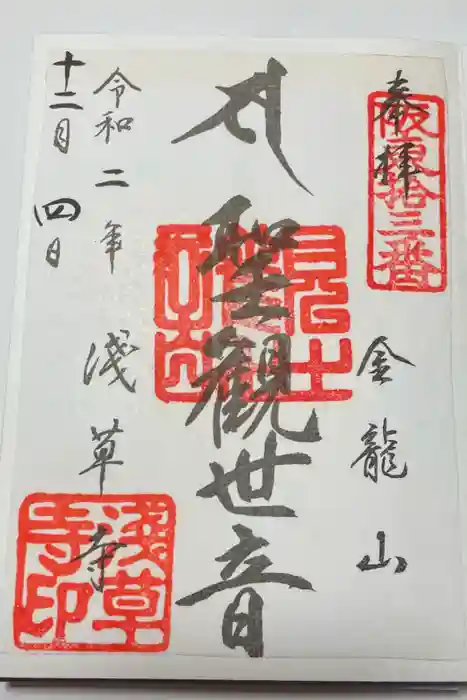 奉拝
坂東拾三番
金龍山
聖観世音
令和二年
浅草寺
十二月四日
浅草寺印